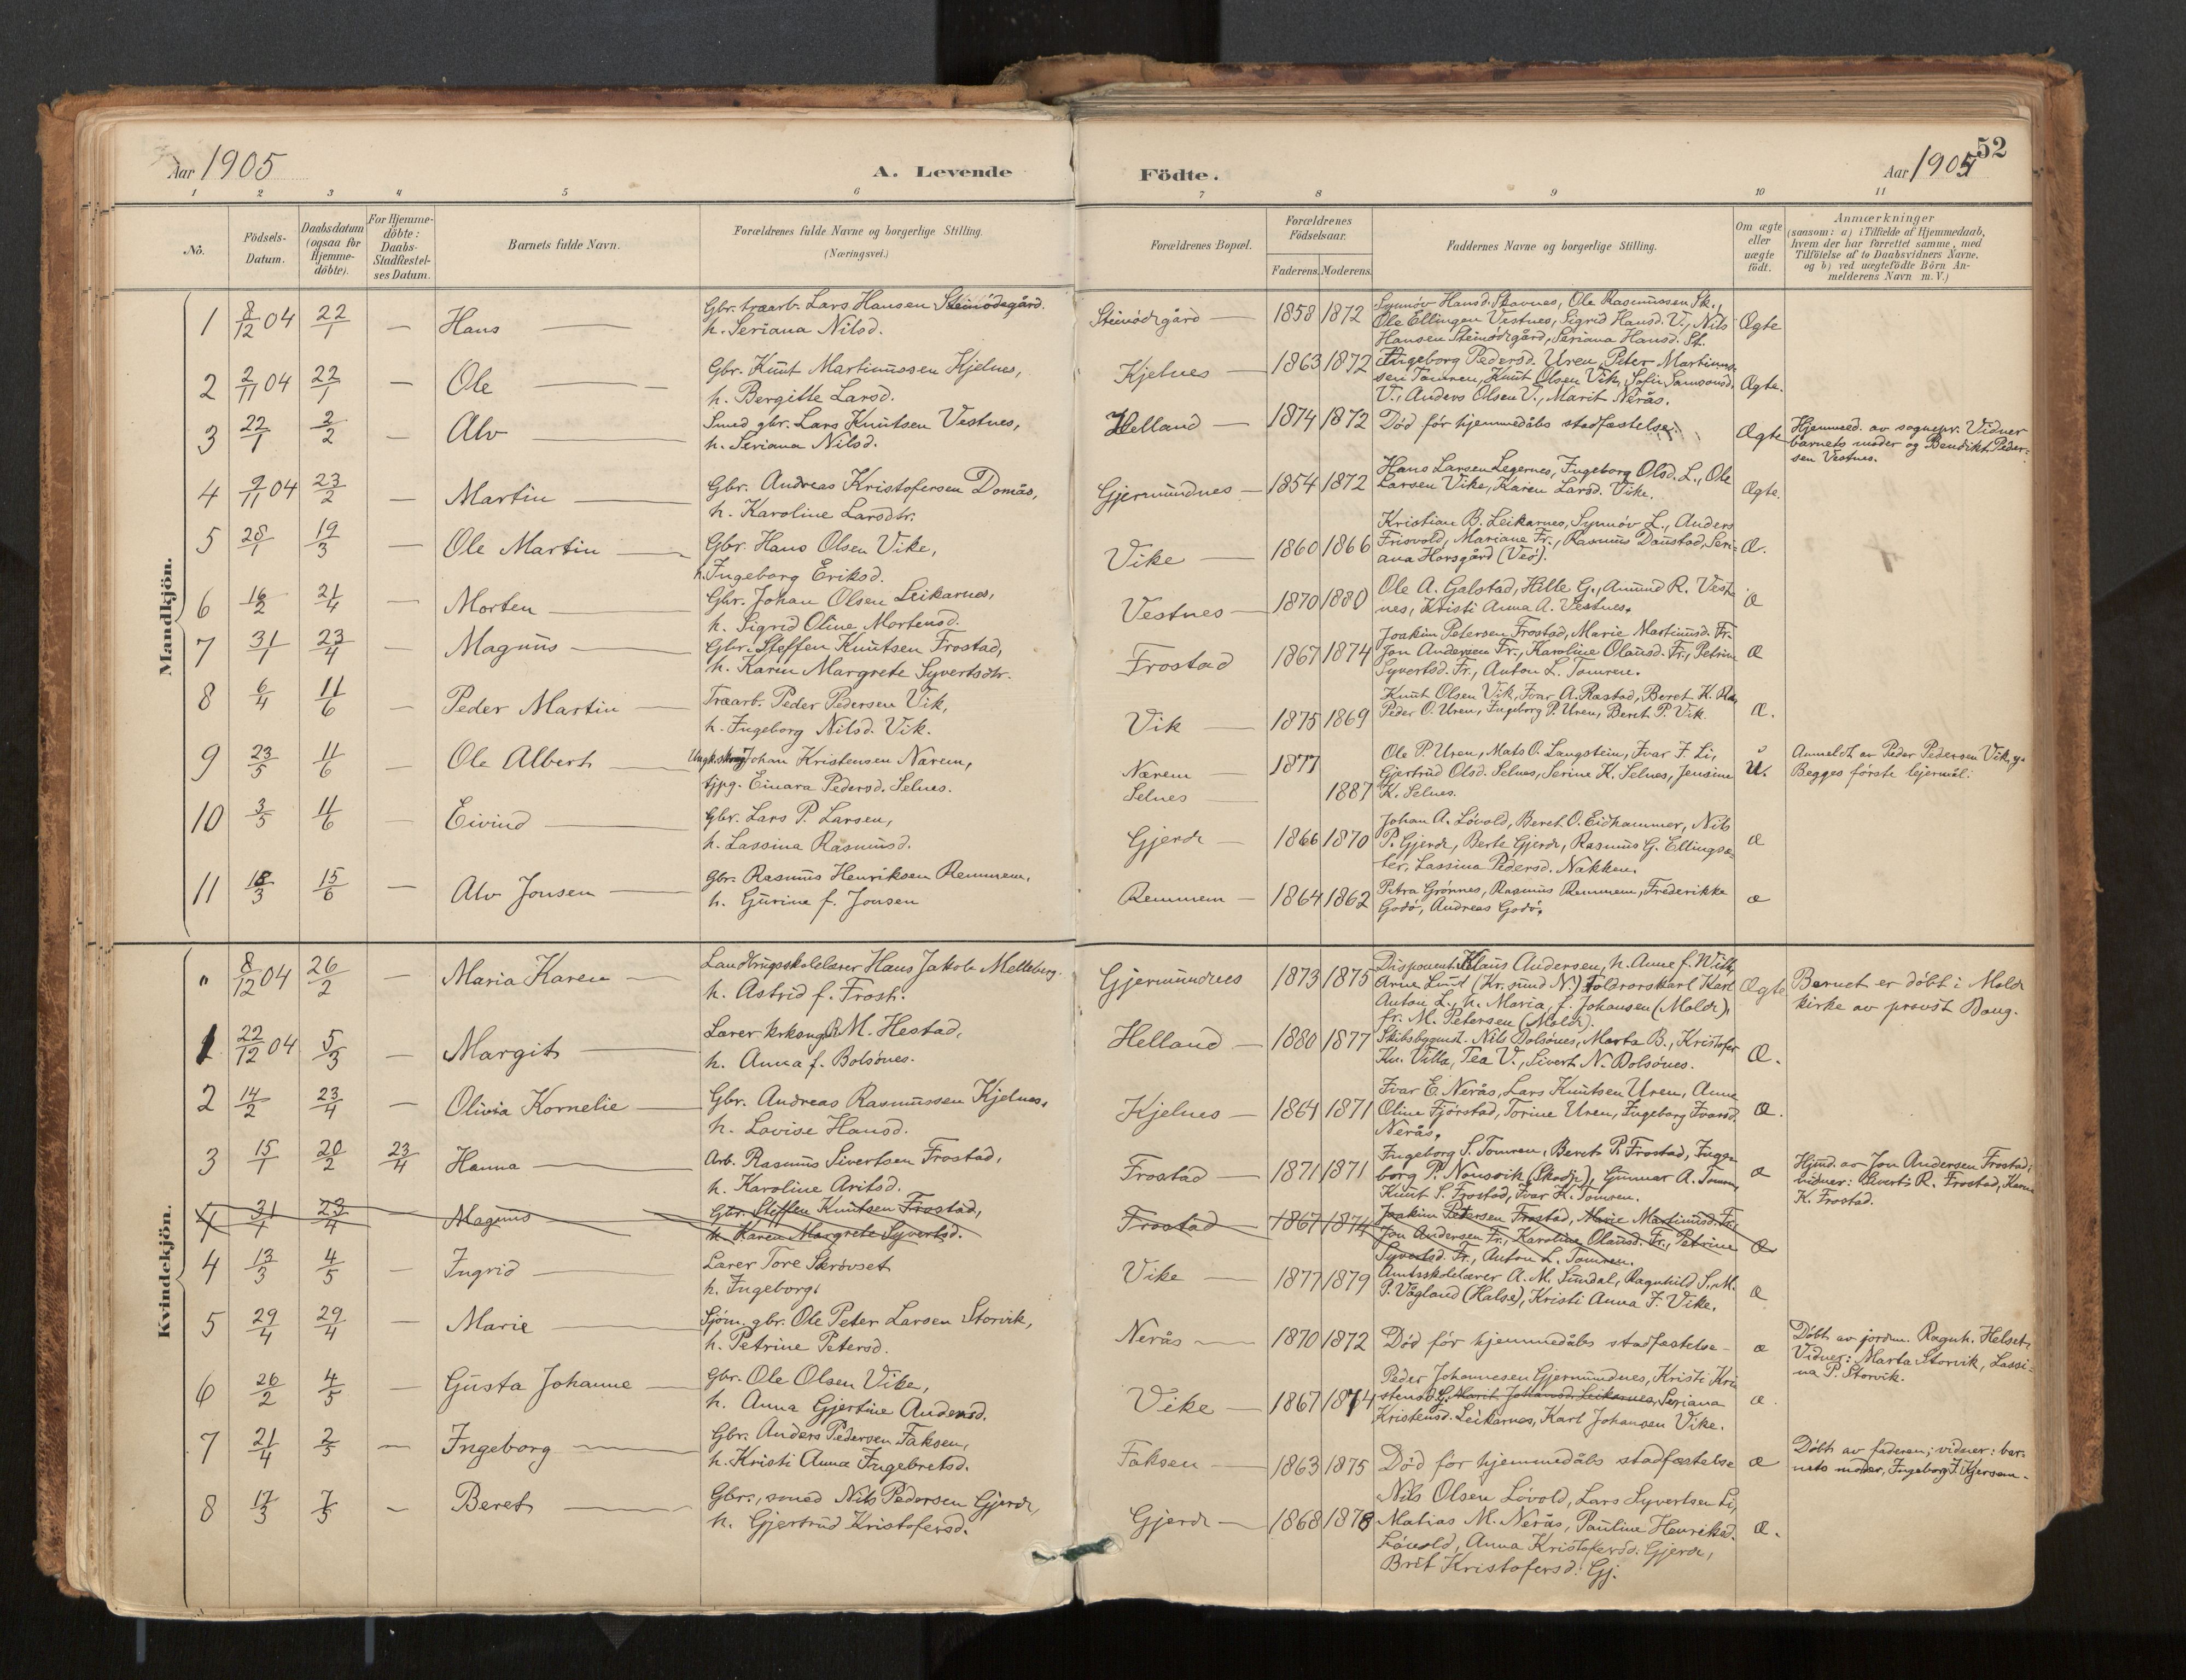 Aar 1905
A. Levende
Födte.
Aar 1905
52
1 2 3 4 5 6 7 8 9 10 11
No.
Födsels-Datum.
Daabsdatum (ogsaa for Hjemme-döbte).
For Hjemme-döbte: Daabs-Stadfæstel-ses Datum.
Barnets fulde Navn.
Forældrenes fulde Navne og borgerlige Stilling.
(Næringsvei.)
Forældrenes Bopæl.
Forældrenes Födselsaar.
Faderens. Moderens.
Faddernes Navne og borgerlige Stilling.
Om ægte eller uægte födt.
Anmærkninger
(saasom: a) i Tilfælde af Hjemmedaab,
hvem der har forrettet samme, med
Tilföielse af to Daabsvidners Navne.
og b) ved uægtefödte Börn An-
melderens Navn m. V.)
Mandkjön.
1 8/12 04 22/1 — Hans
Gbr. træarb. Lars Hansen Steinödegård.
h. Seriana Nilsd.
Steinödegård — 1858 1872
Synnöv Hansd. Stavnes, Ole Rasmussen St.,
Ole Ellingen Vestnes, Sigrid Hansd. V., Nils
Hansen Steinödegård, Seriana Hansd. St.
Ægte
2 2/11 04 22/1 — Ole
Gbr. Knut Martinussen Kjelnes,
h. Bergitte Larsd.
Kjelnes — 1863 1872
Ingeborg Pedersd. Uren, Peter Martinus-
sen Tomren, Knut Olsen Vik, Sofie Samsonsd.
V., Anders Olsen V., Marit Nerås.
Ægte.
3 22/1 2/2 — Alv
Smed gbr. Lars Knutsen Vestnes,
h. Seriana Nilsd.
Helland — 1874 1872
Död för hjemmedåbs stadfæstelse.
Ægte
Hjemmed. av sognepr. Vidner
barnets moder og Bendikt Peder-
sen Vestnes.
4 9/11 04 23/2 — Martin
Gbr. Andreas Kristofersen Domås,
h. Karoline Larsdtr.
Gjermundnes — 1854 1872
Hans Larsen Legernes, Ingeborg Olsd. L., Ole
Larsen Vike, Karen Larsd. Vike.
Ægte.
5 28/1 19/3 — Ole Martin
Gbr. Hans Olsen Vike,
h. Ingeborg Eriksd.
Vike — 1860 1866
Kristian B. Leikarnes, Synnöv L., Anders
Frisvold, Mariane Fr., Rasmus Daustad, Seri-
ana Horsgård (Veö).
Æ.
6 16/2 21/4 — Morten
Gbr. Johan Olsen Leikarnes,
h. Sigrid Oline Mortensd.
Vestnes — 1870 1880
Ole A. Galstad, Hille G., Amund R. Vest-
nes, Kristi Anna A. Vestnes.
æ
7 31/1 23/4 — Magnus
Gbr. Steffen Knutsen Frostad,
h. Karen Margrete Syvertsdtr.
Frostad 1867 1874
Joakim Petersen Frostad, Marie Martinusd. Fr.
Jon Andersen Fr., Karoline Olausd. Fr., Petrine
Syvertsd. Fr., Anton L. Tomren.
Æ
8 6/4 11/6 — Peder Martin
Træarb. Peder Pedersen Vik,
h. Ingeborg Nilsd. Vik.
Vik — 1875 1869
Knut Olsen Vik, Ivar A. Rastad, Beret K.
Peder O. Uren, Ingeborg P. Uren, Beret P. Vik.
Æ.
9 23/5 11/6 — Ole Albert
Johan Kristensen Nærem,
tjpg. Einara Pedersd. Selnes.
Nærem — 1877
Selnes — 1887
Ole P. Uren, Mats O. Langstein, Ivar J. Li,
Gjertrud Olsd. Selnes, Serine K. Selnes, Jensine
K. Selnes.
U.
Anmeldt av Peder Pedersen Vik,
Begges förste lejermål.
10 3/5 11/6 — Eivind
Gbr. Lars P. Larsen,
h. Lassina Rasmusd.
Gjerde — 1866 1870
Johan A. Lövold, Beret O. Eidhammer, Nils
P. Gjerde, Berte Gjerde, Rasmus G. Ellingsæ-
ter, Lassina Pedersd. Nakken.
æ
11 18/3 15/6 — Alv Jonsen
Gbr. Rasmus Henriksen Remmem,
h. Gurine f. Jonsen
Remmem — 1864 1862
Petra Grönnes, Rasmus Remmem, Frederikke
Godö, Andreas Godö.
æ
Kvindekjön.
" 8/12 04 26/2 — Maria Karen
Landbrugsskolelærer Hans Jakob Melleberg.
h. Astrid f. Frost.
Gjermundnes 1873 1875
Disponent Klaus Andersen, h. Anne f. Witt,
Arne Lund (Kr.sund N.) Toldrorskarl Karl
Anton L., h. Maria, f. Johansen (Molde),
fr. M. Petersen (Molde).
Ægte
Barnet er döbt i Molde
kirke av provst Daug.
1 22/12 04 5/3 — Margit
Lærer krksang. M. Hestad,
h. Anna f. Bolsönes.
Helland — 1880 1877
Skibsbygmst. Nils Bolsönes, Marta B., Kristofer
Kn. Villa, Tea V., Sivert N. Bolsönes.
Æ.
2 14/2 23/4 — Olivia Kornelie
Gbr. Andreas Rasmussen Kjelnes,
h. Lovise Hansd.
Kjelnes — 1864 1871
Ivar E. Nerås, Lars Knutsen Uren, Anne
Oline Fjörstad, Torine Uren, Ingeborg Ivarsd.
Nerås.
Æ.
3 15/1 20/2 23/4 Hanna
Arb. Rasmus Sivertsen Frostad,
h. Karoline Aritsd.
Frostad — 1871 1871
Ingeborg S. Tomren, Beret P. Frostad, Inge-
borg P. Nonsvik (Skodje), Gunnar A. Tomren,
Knut S. Frostad, Ivar K. Tomren.
æ
Hjmd. av Jon Andersen Frostad;
vidner: Sivert R. Frostad, Karen
K. Frostad.
4 31/1 23/4 Magnus
Gbr. Steffen Knutsen Frostad,
h. Karen Margrete Syvertsd.
Frostad 1867 1874
Joakim Petersen Frostad, Marie Martinusd. Fr.
Jon Andersen Fr., Karoline Olausd. Fr., Petrine
Syvertsd. Fr., Anton L. Tomren.
æ
4 13/3 4/5 — Ingrid
Lærer Tore Skrövset
h. Ingeborg
Vike — 1877 1879
Amtsskolelærer A. M. Sundal, Ragnhild S., M.
P. Vågland (Halse), Kristi Anna J. Vike.
æ
5 29/4 29/4 — Marie
Sjöm. gbr. Ole Peter Larsen Storvik,
h. Petrine Petersd.
Nerås — 1870 1872
Död för hjemmedåbs stadfæstelse –
æ
Döbt av jordm. Ragnh. Helset,
Vidner: Marta Storvik, Lassi-
na P. Storvik.
6 26/2 4/5 — Gusta Johanne
Gbr. Ole Olsen Vike,
h. Anna Gjertine Andersd.
Vike — 1867 1874
Peder Johannesen Gjermundnes, Kristi Kri-
stensd. G. Marit Johansd. Leikarnes, Seriana
Kristensd. Leikarnes, Karl Johansen Vike.
æ.
7 21/4 2/5 — Ingeborg
Gbr. Anders Pedersen Faksen,
h. Kristi Anna Ingebretsd.
Faksen — 1863 1875
Död for hjemmedåbs stadfæstelse
æ
Döbt av faderen; vidner: bar-
nets moder, Ingeborg J. Kjersem.
8 17/3 7/5 — Beret
Gbr., smed Nils Pedersen Gjerde,
h. Gjertrud Kristofersd.
Gjerde — 1868 1878
Nils Olsen Lövold, Lars Syvertsen Li,
Matias M. Nerås, Pauline Henriksd.
Lövold, Anna Kristofersd. Gjerde,
Brit Kristofersd. Gj.
æ.